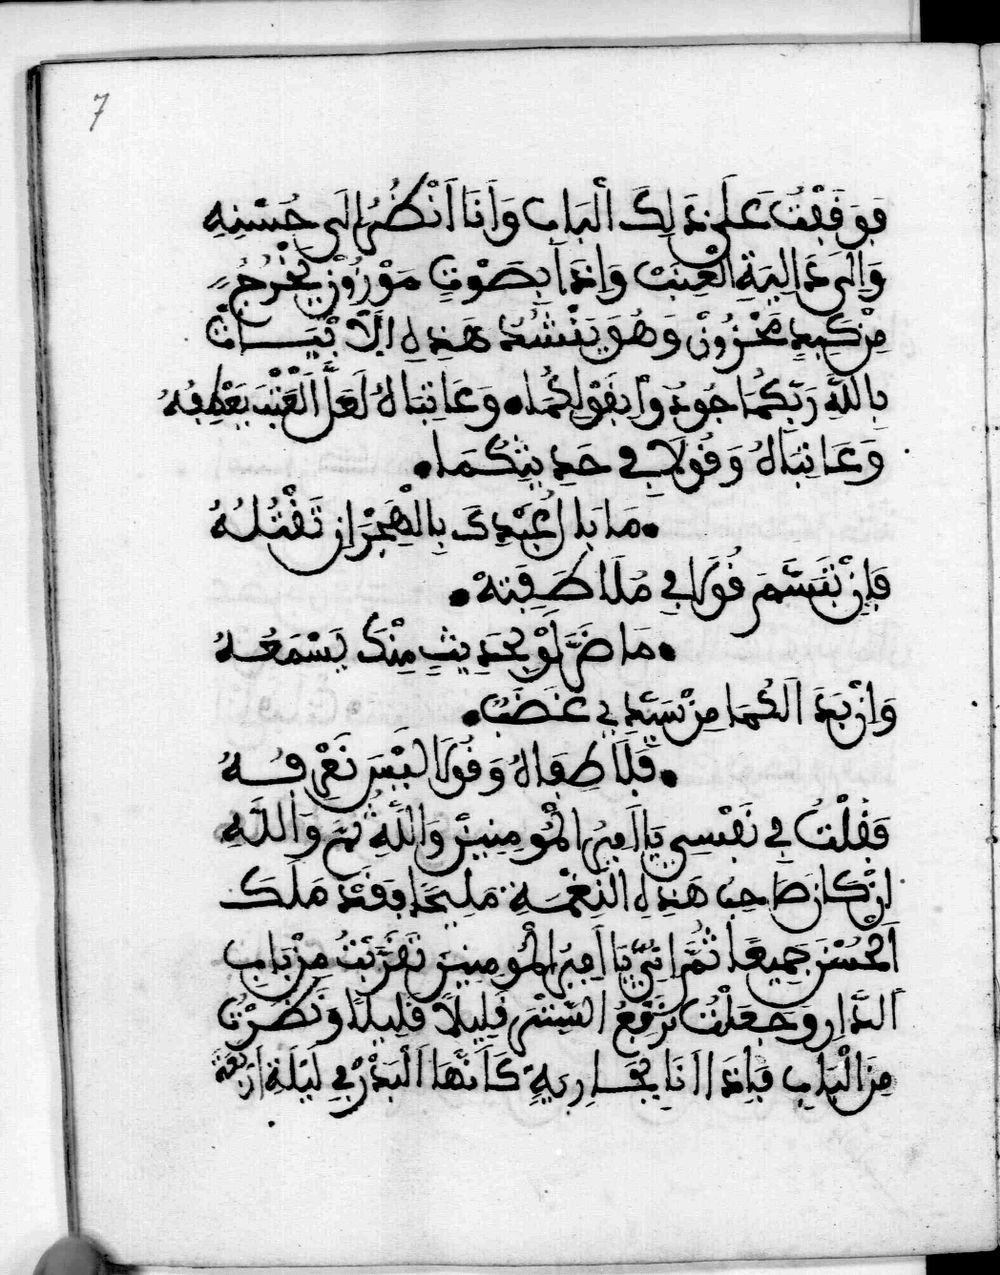 7
فَوَقَفْتُ عَلَى ذَلِكَ اَلْبَابِ وَأَنَا أَنْظُرُ إِلَى حُسْنِهِ
وَإِلَى دَالِيَةِ الْعِنَبْ وَإِذَا بِصَوْتٍ مَوْزُوْنٍ يَخْرُجُ
مِنْ كَبِدٍ مَحْزُونْ وَهُوَ يَنْشُدُ هَذِهِ الْاَبْيَاتْ
بِاللَّهِ رَبِّكُمَا جُودُوا بِقَوْلِكُمَا. وَعَاتِبَاهُ لَعَلَّ الْعَتْبَ يَعْطِفُهُ
وَعَاتِبَاهُ وَقُولَا فِي حَدِيثِكُمَا.
.مَا بَالُ عَبْدِكَ بِالْهَجْرَانِ تَقْتُلُهُ
فَإِنْ تَبَسَّمَ قُولَا فِي مُلَاطَفَتِهْ.
.مَا ضَرَّ لَوْ بِحَدِيثٍ مِنْكَ يَسْمَعُهُ
وَإِنْ بَدَا لَكُمَا مِنْ سَيِّدِي غَضَبٌ.
.فَلَاطِفَاهُ وَقُولَا لَيْسَ نَعْرِفُهُ
فَقُلْتُ فِي نَفْسِي يَا اَمِيرَ الْمُومِنِينَ وَاللَّهِ ثُمَّ وَاللَّهِ
اِنْ كَانَ صَاحِبُ هَذِهِ النَّغْمَةِ مَلِيحًا فَقَدْ مَلَكَ
اَلْحُسْنَ جَمِيعًا ثُمَّ إِنِّي يَا اَمِيرَ الْمُومِنِينَ تَقَرَّبْتُ مِنْ بَابِ
اَلدَّارِ وَجَعَلْتُ نَرْفَعُ السِّتْرَ قَلِيلًا قَلِيلًا وَنَظَرْتُ
مِنَ الْبَابِ فَإِذَا اَنَا بِجَارِيَةٍ كَأَنَّهَا اَلْبَدْرُ فِي لَيْلَةِ اَرْبَعَةَ